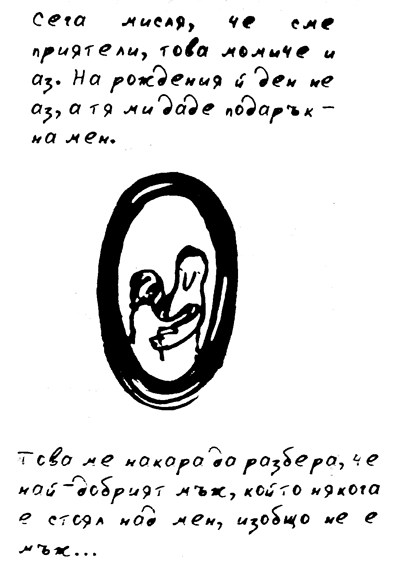 Сега мисля, че сме
приятели, това момиче и
аз. На рождения ѝ ден не
аз, а тя ми даде подарък –
на мен.
Това ме накара да разбера, че
най-добрият мъж, който някога
е стоял над мен, изобщо не е
мъж...